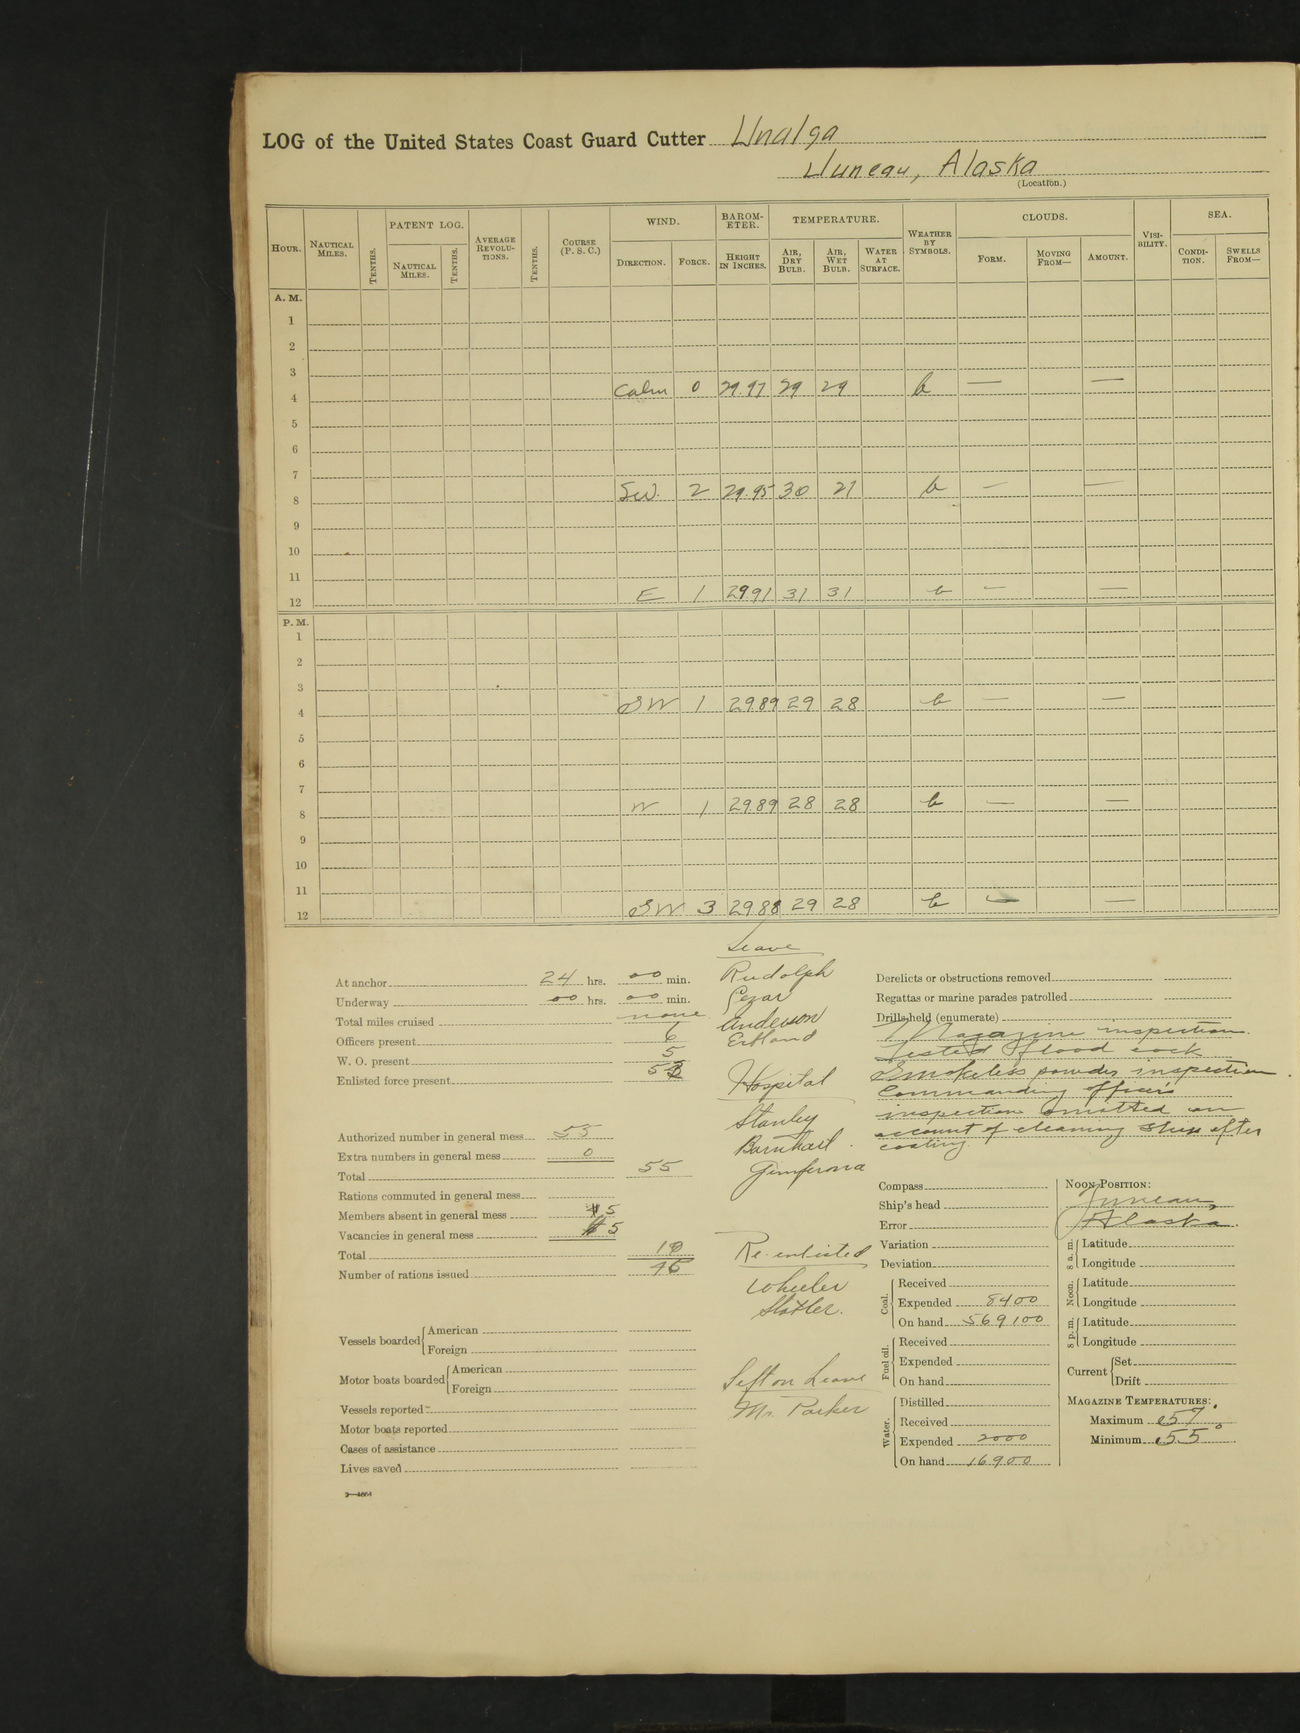 LOG of the United States Coast Guard Cutter Unalga
Juneau, Alaska
(Location.)
HOUR. NAUTICAL MILES. TENTHS. PATENT LOG. NAUTICAL MILES. TENTHS. AVERAGE REVOLU-TIONS. TENTHS. COURSE (P. S. C.) WIND. DIRECTION. FORCE. BAROM-ETER. HEIGHT IN INCHES. TEMPERATURE. AIR, DRY BULB. AIR, WET BULB. WATER AT SURFACE. WEATHER BY SYMBOLS. CLOUDS. FORM. MOVING FROM— AMOUNT. VISI-BILITY. SEA. CONDI-TION. SWELLS FROM—
A. M.
1
2
3
4 Calm 0 29.97 29 29 b — —
5
6
7
8 SW. 2 29.95 30 27 b — —
9
10
11
12 E 1 2991 31 31 b — —
P. M.
1
2
3
4 SW 1 2989 29 28 b — —
5
6
7
8 W 1 2989 28 28 b — —
9
10
11
12 SW 3 2988 29 28 b — —
At anchor 24 hrs. 00 min.
Underway 00 hrs. 00 min.
Total miles cruised none
Officers present 6
W. O. present 5
Enlisted force present
Authorized number in general mess 55
Extra numbers in general mess 0
Total 55
Rations commuted in general mess
Members absent in general mess 5
Vacancies in general mess 5
Total 10
Number of rations issued 45
Vessels boarded American
Foreign
Motor boats boarded American
Foreign
Vessels reported
Motor boats reported
Cases of assistance
Lives saved
2—4864
Leave
Rudolph
Anderson
Hospital
Stanley
Re-enlisted
Wheeler
Leave
Mr. Parker
Derelicts or obstructions removed
Regattas or marine parades patrolled
Drills held (enumerate)
Magazine inspection.
Tested flood cock
Smokeless powder inspection.
Commanding officer's
inspection omitted on
account of cleaning ship after
coaling.
Compass
Ship's head
Error
Variation
Deviation
Coal. Received
Expended 8400
On hand 569100
Fuel oil. Received
Expended
On hand
Water. Distilled
Received
Expended 2000
On hand 16900
NOON POSITION:
Juneau,
Alaska.
8 a. m. Latitude
Longitude
Noon. Latitude
Longitude
8 p. m. Latitude
Longitude
Current Set
Drift
MAGAZINE TEMPERATURES:
Maximum 57°
Minimum 55°